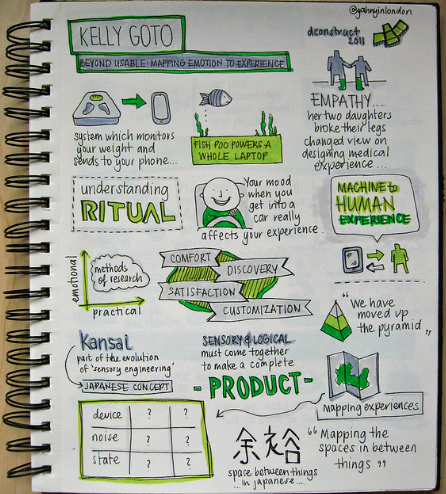 @gahnyinlondon
KELLY GOTO
BEYOND USABLE: MAPPING EMOTION TO EXPERIENCE
deconstruct
2011
system which monitors
your weight and
sends to your phone...
FISH POO POWERS A
WHOLE LAPTOP
EMPATHY...
her two daughters
broke their legs
changed view on
designing medical
experience...
understanding
RITUAL
Your mood
when you
get into a
car really
affects your experience.
MACHINE to
HUMAN
EXPERIENCE
emotional
methods
of research
practical
COMFORT
DISCOVERY
SATISFACTION
CUSTOMIZATION
"We have
moved up
the pyramid"
Kansai
part of the evolution
of 'sensory engineering'
JAPANESE CONCEPT
SENSORY & LOGICAL
must come together
to make a complete
- PRODUCT -
mapping experiences
device ? ?
noise ? ?
state ? ?
space between things
...in japanese...
"Mapping the
spaces in between
things"